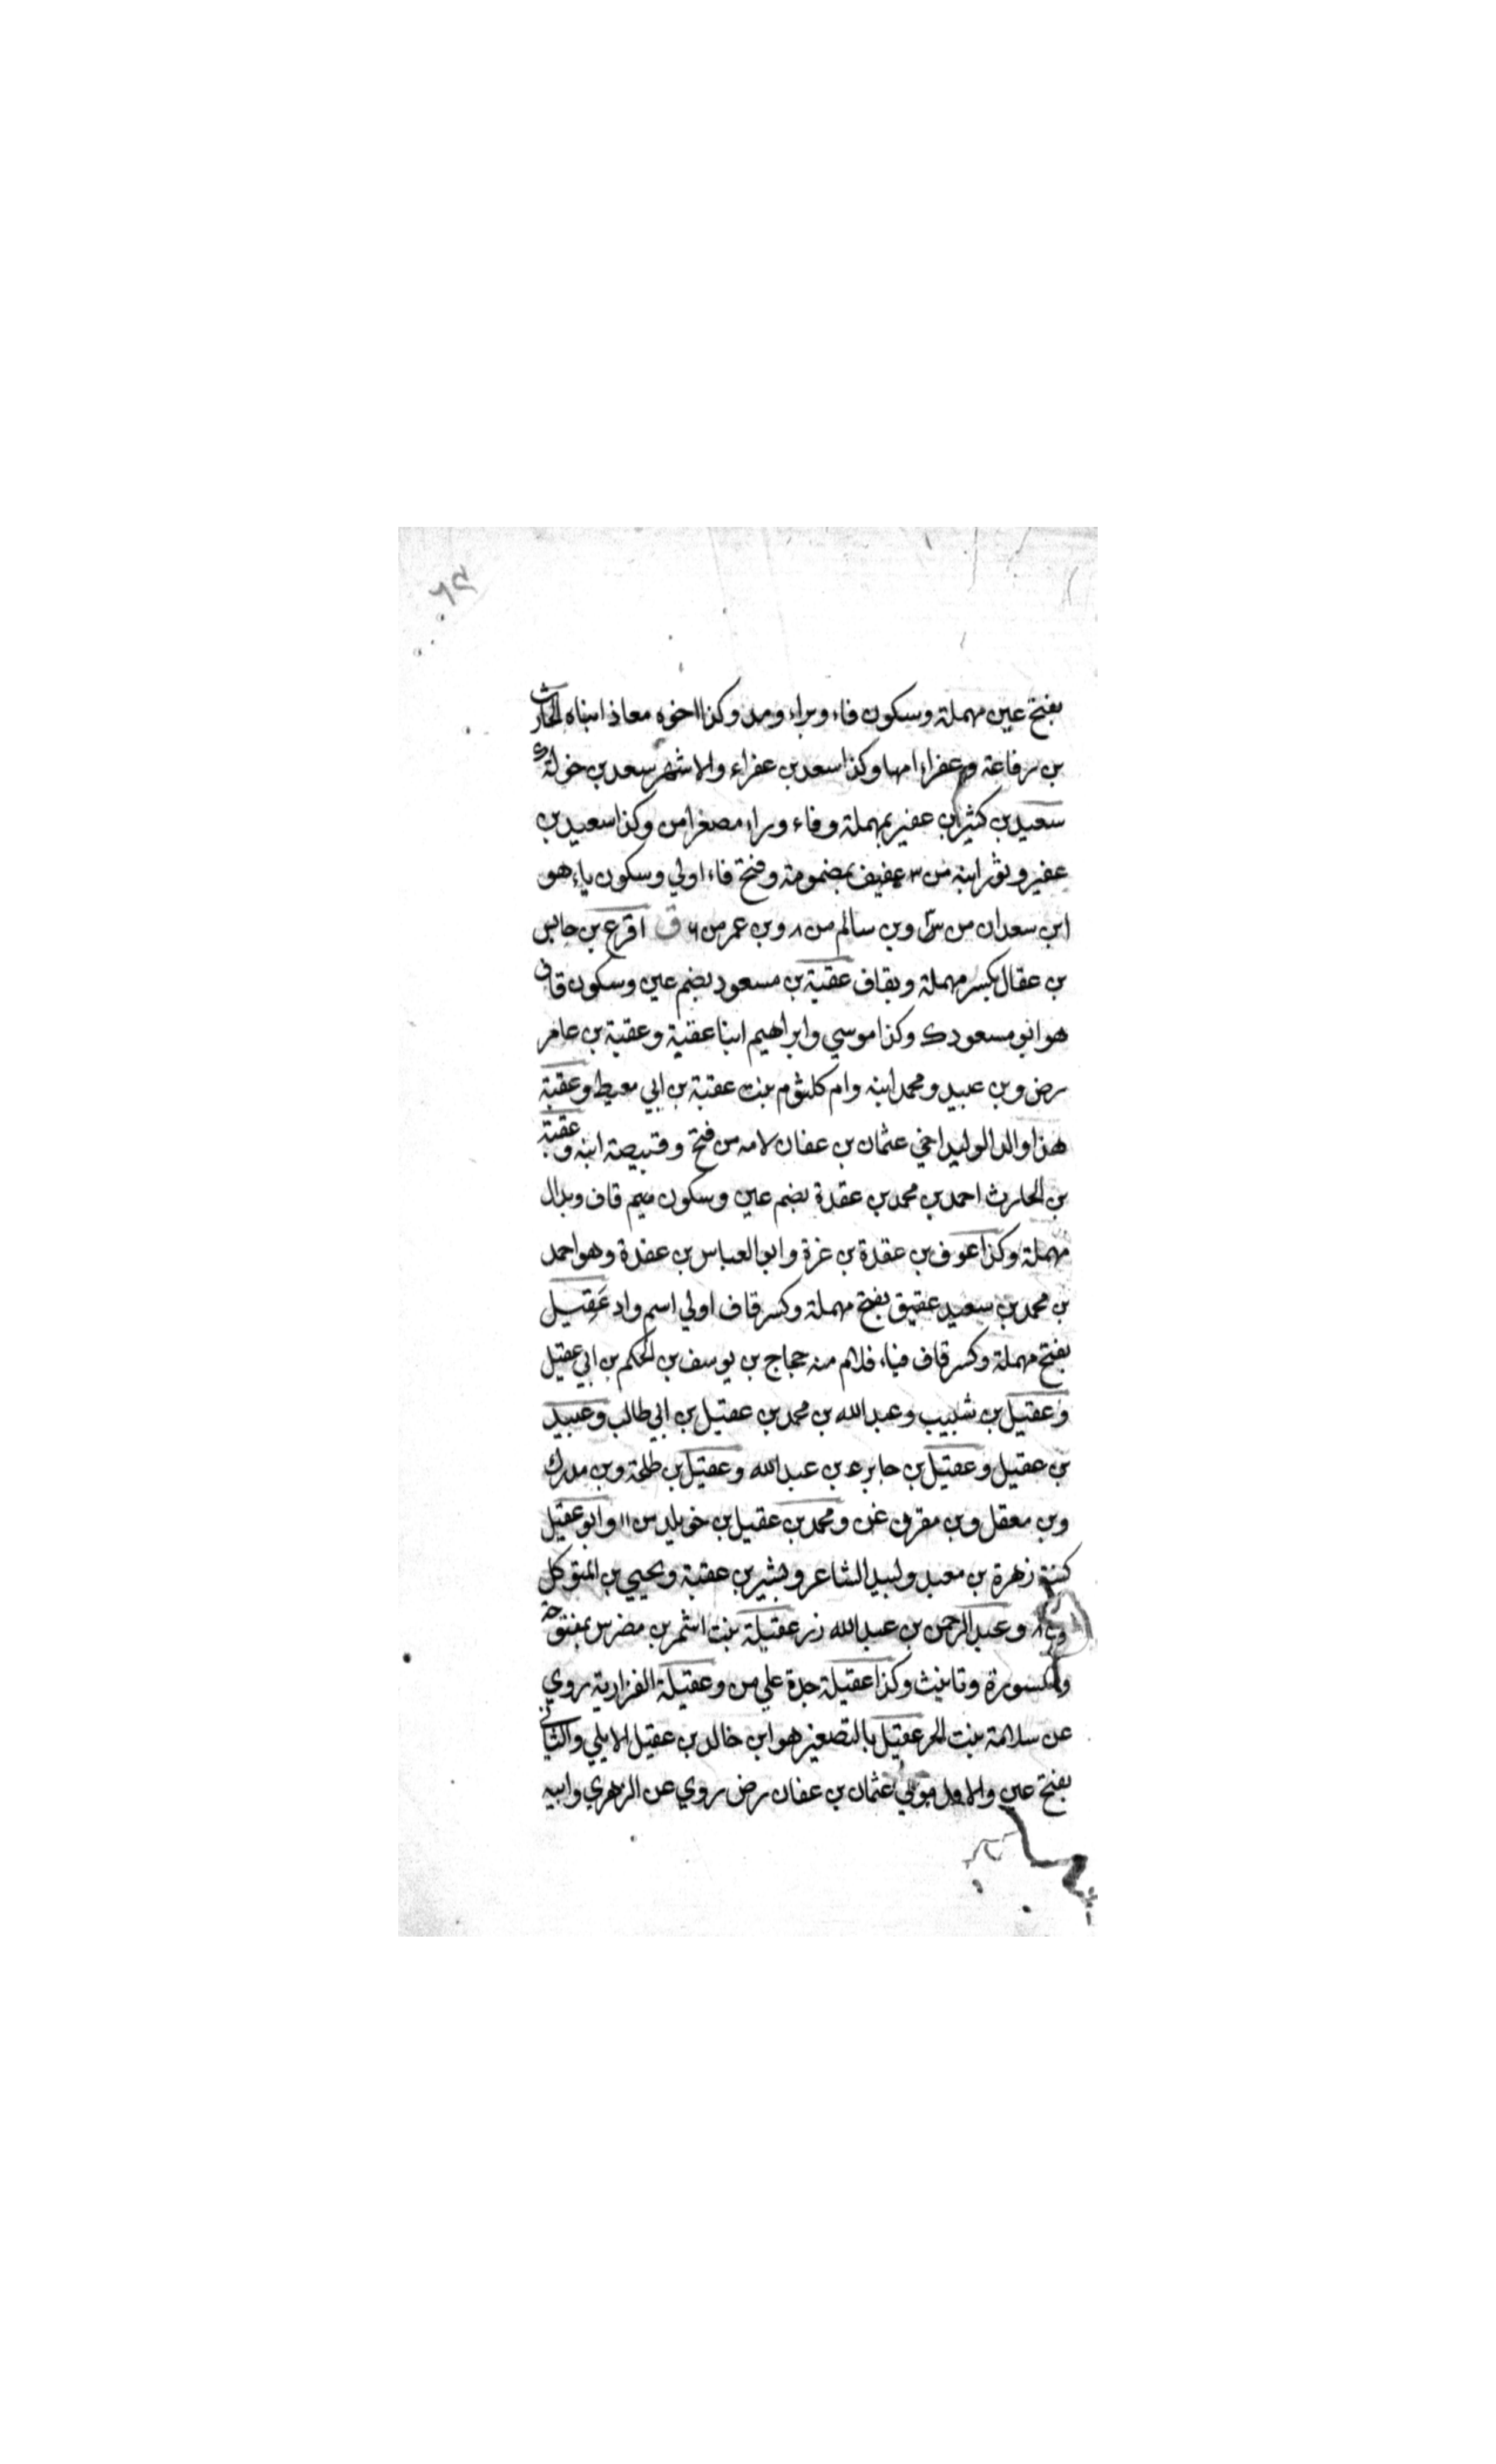 بفتح عين مهملة وسكون فاء وبراء ومد وكذا اخوه معاذ ابناه الحارث
بن رفاعة وعفراء امها وكذا سعد بن عفراء والاشهر سعد بن خولة و
سعيد بن كثير بن عفير بمهملة وفاء وراء مصغرا من وكذا سعيد بن
عفير وبوثر ابنه من ٣ عفيف بمضمومة وفتح فاء اولي وسكون ياء هو
ابن سعدان من وبن سالم من ٨ وبن عمر من ٦ ق اقرع بن حابس
بن عقال بكسر مهملة وبقاف عقبة بن مسعود بضم عين وسكون قاف
هو ابو مسعود ك وكذا موسي وابراهيم ابنا عقبة وعقبة بن عامر
رض وبن عبيد ومحمد ابنه وام كلثوم بنت عقبة بن ابي معيط وعقبة
هذا والد الوليد اخي عثمان بن عفان لامه من فتح وقبيصة ابنه وعقبة
بن الحارث احمد بن محمد بن عقدة بضم عين وسكون ميم قاف وبدال
مهملة وكذا عوف بن عقدة بن غزة وابو العباس بن عقدة وهو احمد
بن محمد بن سعيد عقيق بفتح مهملة وكسر قاف اولي اسم واد عَقِيل
بفتح مهملة وكسر قاف فياء فلام منه حجاج بن يوسف بن الحكم بن ابي عقيل
وعقيل بن شبيب وعبد الله بن محمد بن عقيل بن ابي طالب وعبيد
بن عقيل وعقيل بن جابر ع بن عبد الله وعقيل بن طلحة وبن مدرك
وبن معقل وبن مقرن غن ومحمد بن عقيل بن خويلد س ١١ وابو عقيل
كنية زهرة بن معبد ولبيد الشاعر وبشير بن عقبة ويحيي بن المتوكل
وعبد الرحمن بن عبد الله زر عقيلة بنت اشمر بن مضرس بمفتوحة
ومكسورة وتانيث وكذا عقيلة جدة علي من وعقيلة الفزارية روي
عن سلامة بنت الحر عقيل بالتصغير هو ابن خالد بن عقيل الايلي والثاني
بفتح عين والاول مولي عثمان بن عفان رض روي عن الزهري وابيه